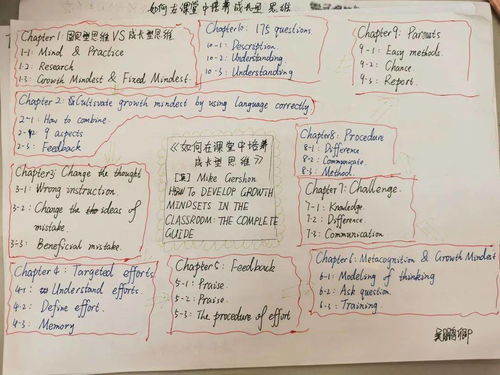 如何在课堂中培养成长型思维
Chapter 1: 固定型思维 VS 成长型思维
1-1: Mind & Practice
1-2: Research
1-3: Growth Mindest & Fixed Mindest.
Chapter 10: 175 questions.
10-1: Description.
10-2: Understanding
10-3: Understanding
Chapter 9: Parents
9-1: Easy methods.
9-2: Chance.
9-3: Report.
Chapter 2: Cultivate growth mindest by using language correctly
2-1: How to combine.
2-2: 9 aspects
2-3: Feedback
《如何在课堂中培养
成长型思维》
[英] Mike Gershon
HOW TO DEVELOP GROWTH
MINDSETS IN THE
CLASSROOM: THE COMPLETE
GUIDE
Chapter 8: Procedure
8-1: Difference
8-2: Communicate.
8-3: Method.
Chapter 3: Change the thought
3-1: Wrong instruction.
3-2: Change the ideas of
mistake.
3-3: Beneficial mistake.
Chapter 7: Challenge.
7-1: Knowledge.
7-2: Difference.
7-3: Communication
Chapter 4: Targeted efforts
4-1: Understand efforts.
4-2: Define effort.
4-3: Memory
Chapter 5: Feedback
5-1: Praise.
5-2: Praise.
5-3: The procedure of effort
Chapter 6: Metacognition & Growth Mindest
6-1: Modeling of thinking
6-2: Ask question.
6-3: Training.